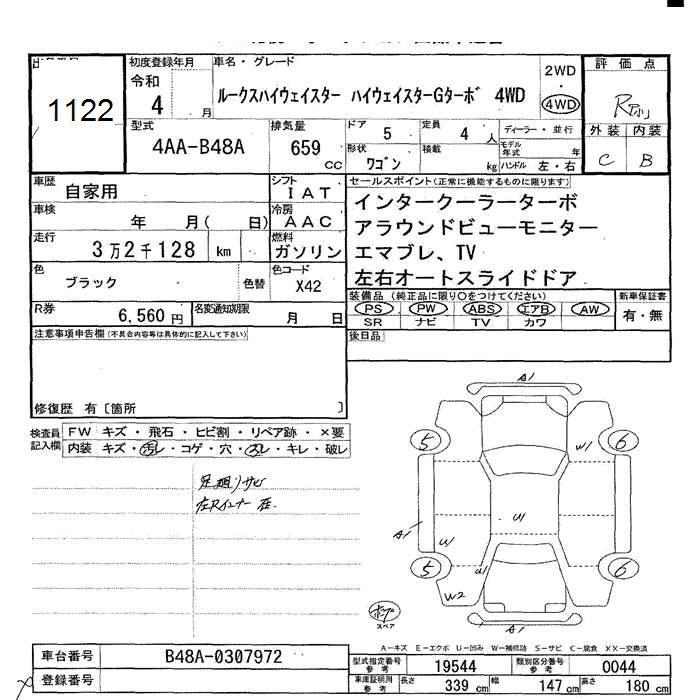 1122
初度登録年月
令和
4 月
車名・グレード
ルークスハイウェイスター ハイウェイスターGターボ 4WD
2WD
・
4WD
評価点
R
外装 内装
C B
型式
4AA-B48A
排気量
659 cc
ドア
5
定員
4 人
形状
ワゴン
積載
kg
ディーラー・並行
モデル年式 年
ハンドル 左・右
車歴
自家用
シフト
IAT
車検
年 月( 日)
冷房
AAC
走行
3万2千128 km
燃料
ガソリン
色
ブラック
色替
色コード
X42
R券
6,560 円
名変通知期限
月 日
セールスポイント(正常に機能するものに限ります)
インタークーラーターボ
アラウンドビューモニター
エマブレ、TV
左右オートスライドドア
装備品(純正品に限り○をつけてください)
PS PW ABS エアB AW
SR ナビ TV カワ
新車保証書
有・無
後日品
注意事項申告欄(不具合内容等は具体的に記入して下さい)
修復歴 有〔箇所 〕
検査員
記入欄
FW キズ・飛石・ヒビ割・リペア跡・×要
内装 キズ・汚レ・コゲ・穴・スレ・キレ・破レ
足廻りサビ
左Rインナー
A1
5
6
W1
A1
U1
U1
U1
5
6
W2
A1
スペア
A-キズ E-エクボ U-凹み W-補修跡 S-サビ C-腐食 XX-交換済
車台番号
B48A-0307972
登録番号
型式指定番号
参考
19544
類別区分番号
参考
0044
車庫証明用
参考
長さ 339 cm
幅 147 cm
高さ 180 cm